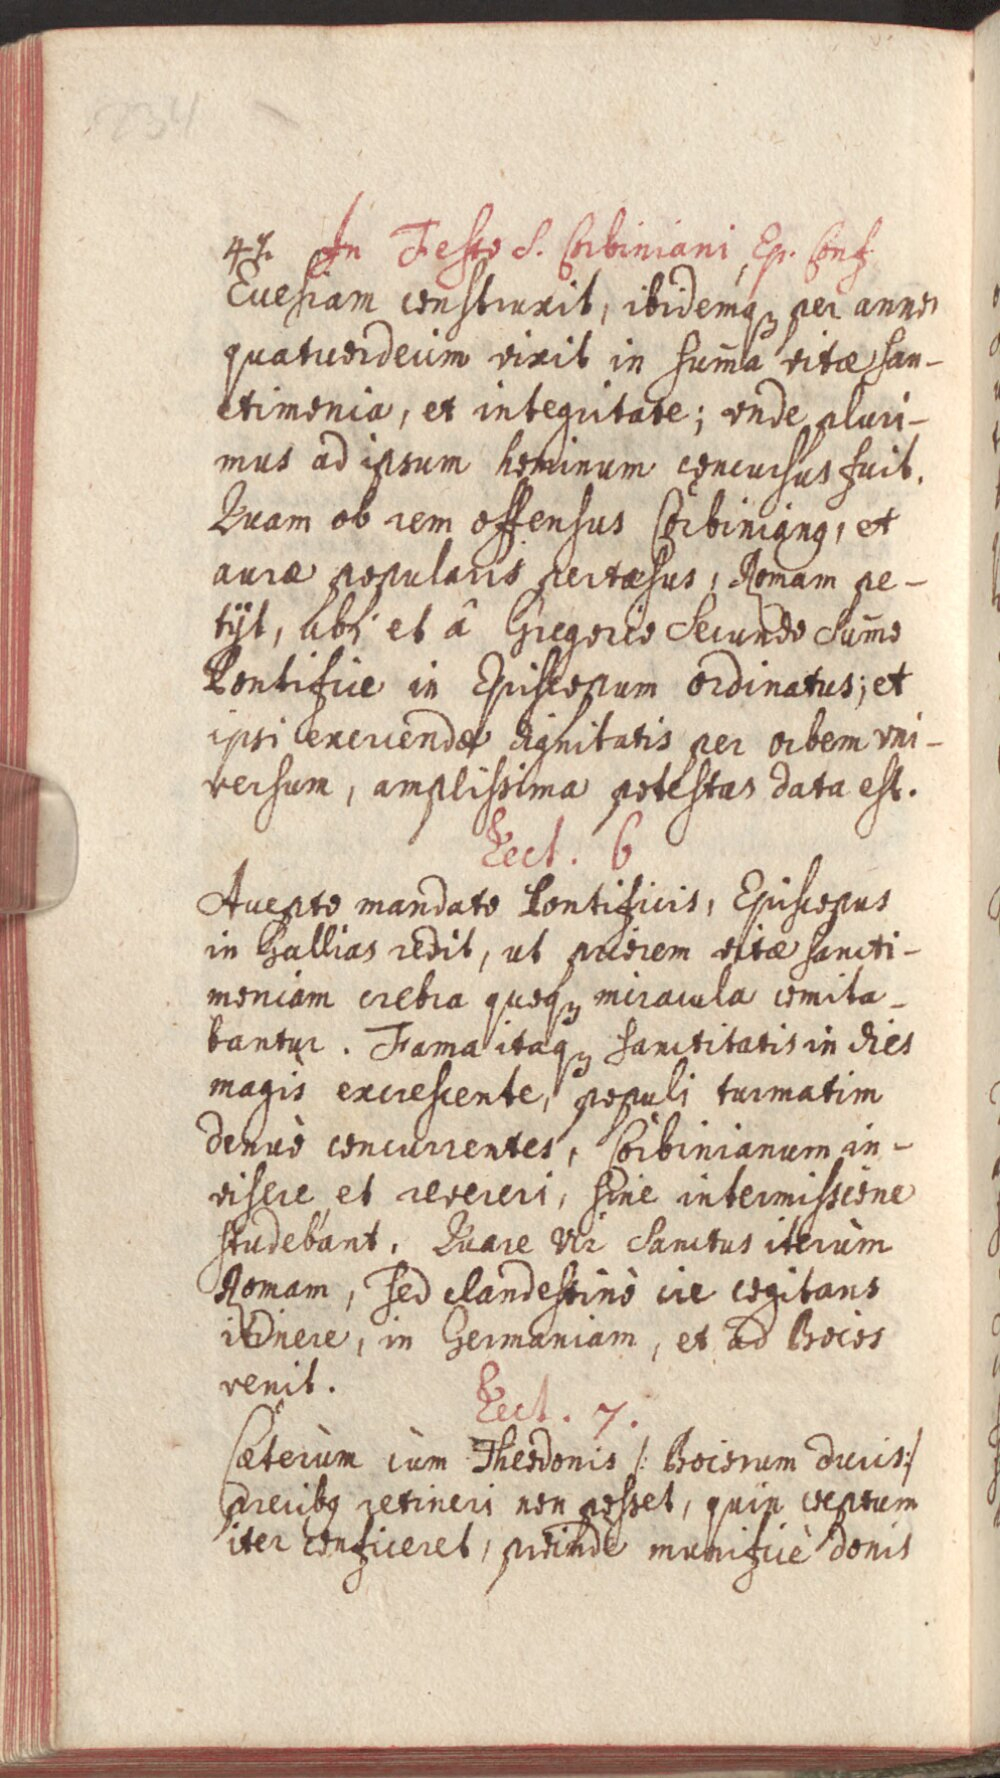 234
47. In Festo S. Corbiniani, Ep. Conf
Ecclesiam construxit, ibidemq₃ per annos
quatuordecim vixit in sum̄a vitæ san-
ctimonia, et integritate; vnde pluri-
mus ad ipsum hominum concursus fuit.
Quam ob rem offensus Corbinianꝰ, et
auræ popularis pertæsus, Romam pe-
tijt, ubi et â Gregorio Secundo Sum̄o
Pontifice in Episcopum ordinatus; et
ipsi exercendæ dignitatis per orbem vni-
versum, amplissima potestas data est.
Lect. 6
Accepto mandato Pontificis, Episcopus
in Gallias redit, ut priorem vitæ sancti-
moniam crebra quoq₃ miracula comita-
bantur. Fama itaq₃ sanctitatis in dies
magis excrescente, populi turmatim
denuò concurrentes, Corbinianum in-
visere, et revereri, sine intermissione
studebant. Quare Vir Sanctus iterùm
Romam, sed clandestinò ire cogitans
itinere, in Germaniam, et ad Boios
venit.
Lect. 7.
Cæterùm cùm Theodonis /: Boiorum Ducis:/
precibꝰ retineri non posset, quin coeptum
iter conficeret, proinde munificè donis